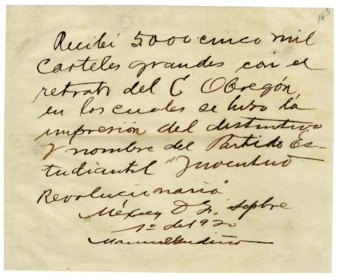 163
Recibí 5000 cinco mil
carteles grandes con el
retrato del C Obregón,
en los cuales se hizo la
impresión del distintivo
y nombre del Partido Es-
tudiantil "Juventud
Revolucionaria"
México D. F. Sepbre
1º de 1920